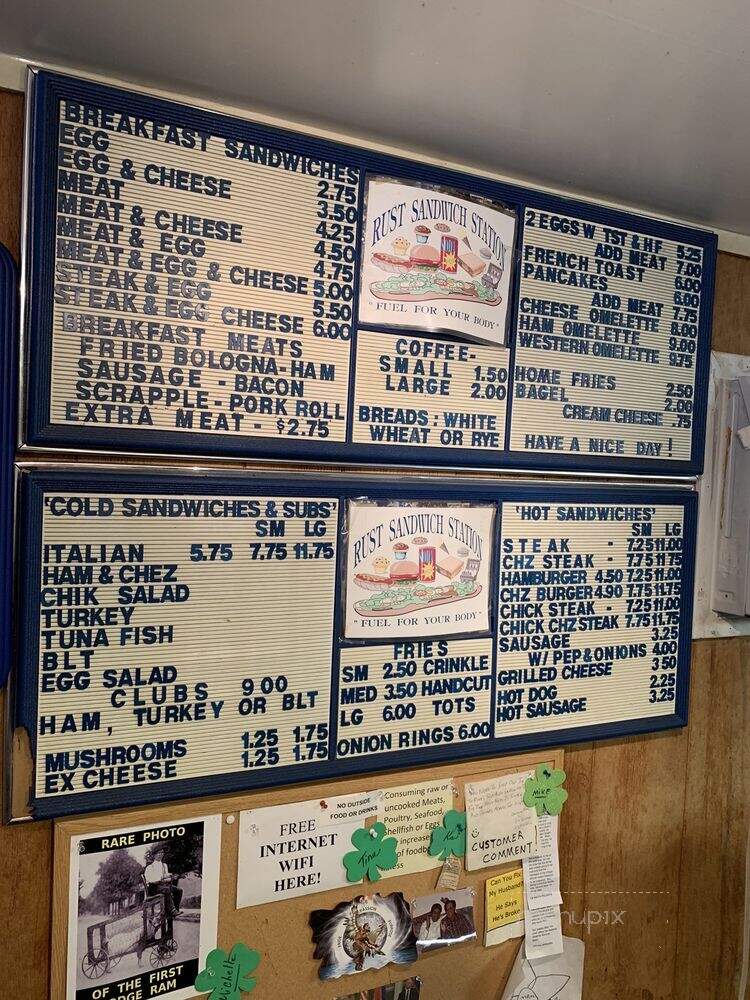 BREAKFAST SANDWICHES
EGG 2.75
EGG & CHEESE 3.50
MEAT 4.25
MEAT & CHEESE 4.50
MEAT & EGG 4.75
MEAT & EGG & CHEESE 5.00
STEAK & EGG 5.50
STEAK & EGG CHEESE 6.00
BREAKFAST MEATS
FRIED BOLOGNA-HAM
SAUSAGE - BACON
SCRAPPLE - PORK ROLL
EXTRA MEAT - $2.75
RUST SANDWICH STATION
"FUEL FOR YOUR BODY"
COFFEE-
SMALL 1.50
LARGE 2.00
BREADS: WHITE
WHEAT OR RYE
2 EGGS W TST & HF 5.25
ADD MEAT 7.00
FRENCH TOAST 6.00
PANCAKES 6.00
ADD MEAT 7.75
CHEESE OMELETTE 8.00
HAM OMELETTE 9.00
WESTERN OMELETTE 9.75
HOME FRIES 2.50
BAGEL 2.00
CREAM CHEESE .75
HAVE A NICE DAY!
'COLD SANDWICHES & SUBS'
SM LG
ITALIAN 5.75 7.75 11.75
HAM & CHEZ
CHIK SALAD
TURKEY
TUNA FISH
BLT
EGG SALAD
CLUBS 9 00
HAM, TURKEY OR BLT
MUSHROOMS 1.25 1.75
EX CHEESE 1.25 1.75
RUST SANDWICH STATION
"FUEL FOR YOUR BODY"
FRIES
SM 2.50 CRINKLE
MED 3.50 HANDCUT
LG 6.00 TOTS
ONION RINGS 6.00
'HOT SANDWICHES'
SM LG
STEAK - 7.25 11.00
CHZ STEAK - 7.75 11.75
HAMBURGER 4.50 7.25 11.00
CHZ BURGER 4.90 7.75 11.75
CHICK STEAK - 7.25 11.00
CHICK CHZ STEAK 7.75 11.75
SAUSAGE 3.25
W/ PEP & ONIONS 4.00
GRILLED CHEESE 3 50
HOT DOG 2.25
HOT SAUSAGE 3.25
RARE PHOTO
OF THE FIRST
DGE RAM
FREE
INTERNET
WIFI
HERE!
NO OUTSIDE
FOOD OR DRINKS
Consuming raw or
uncooked Meats,
Poultry, Seafood,
Shellfish or Eggs
increase
of foodb
ness
CUSTOMER
COMMENT!
Mike
Tina
Michelle
Can You Fix
My Husband?
He Says
He's Broke
nupix